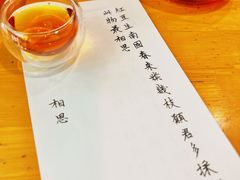 紅豆生南國春來發幾枝願君多採
此物最相思
相思